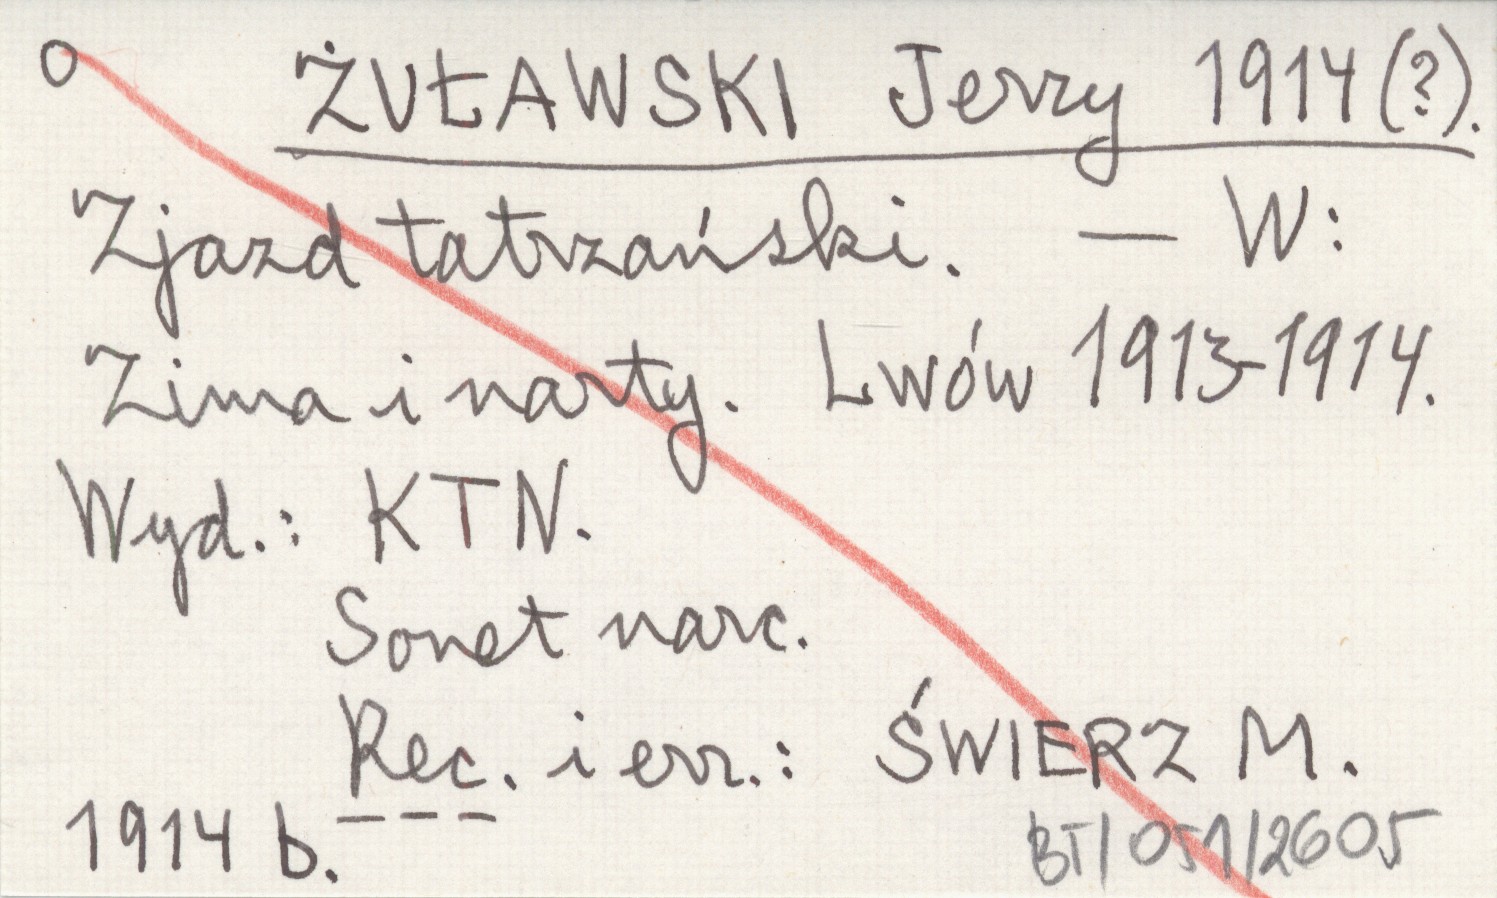 O ŻUŁAWSKI Jerzy 1914 (?).
Zjazd tatrzański. — W:
Zima i narty. Lwów 1913-1914.
Wyd.: KTN.
Sonet narc.
Rec. i err.: ŚWIERZ M.
1914 b.
BT/051/2605